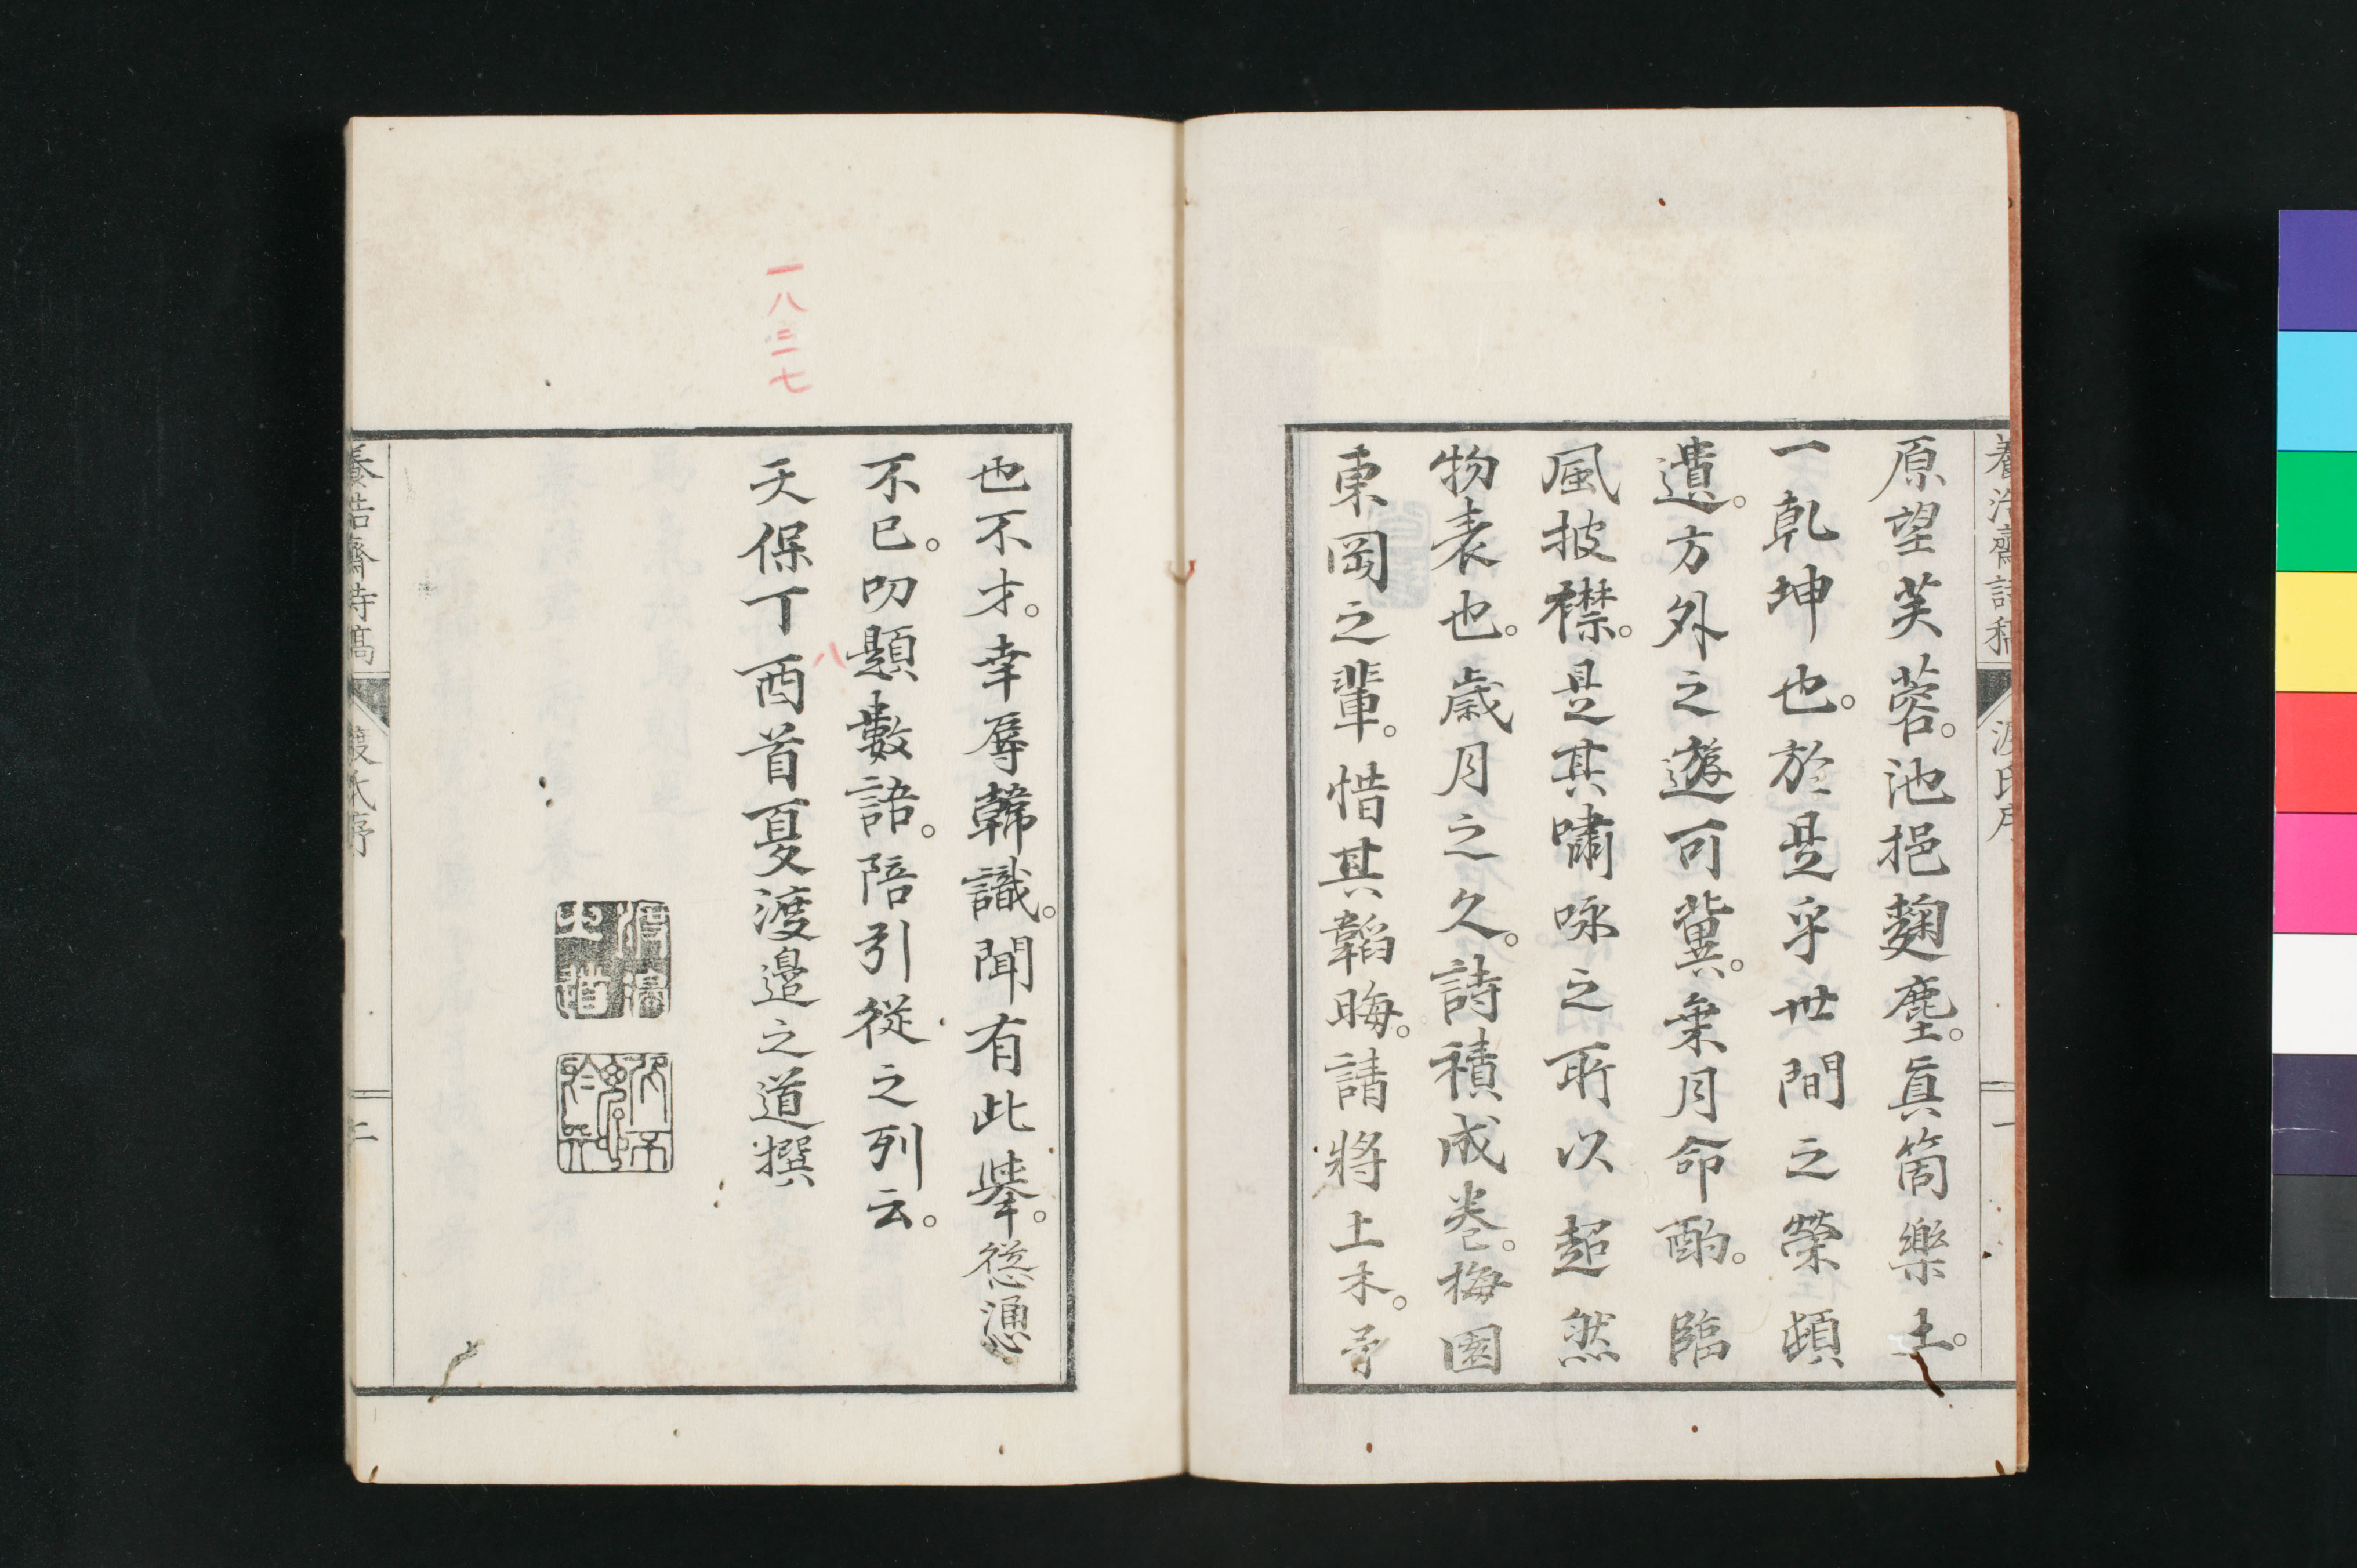 原望芙蓉。池挹麹塵。眞箇樂土。
一乾坤也。於是乎世間之榮頓
遺。方外之遊可冀。乗月命酌。臨
風披襟。是其嘯咏之所以超然
物表也。歳月之久。詩積成巻。梅園
東岡之輩。惜其韜晦。請將上木。予
也不才。幸辱韓識。聞有此擧。慫慂
不已。叨題數語。陪引從之列云。
天保丁酉首夏渡邉之道撰
渡邉之道
養浩齋詩稿
渡氏序
一
養浩齋詩稿
渡氏序
二
一八三七
八